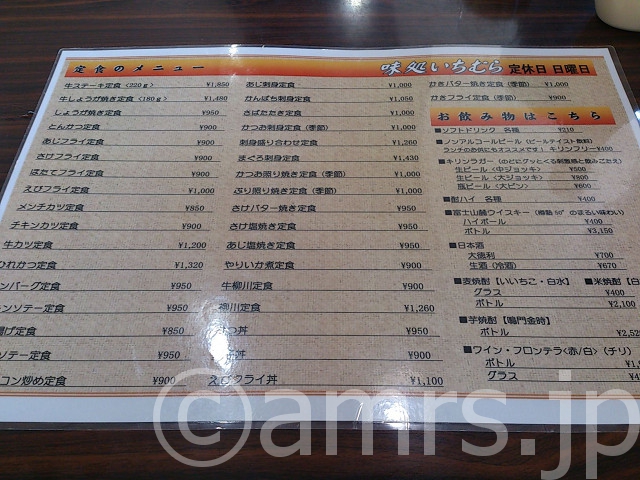 定食のメニュー
牛ステーキ定食〈220g〉 ¥1,850
牛しょうが焼き定食〈180g〉 ¥1,480
しょうが焼き定食 ¥950
とんかつ定食 ¥900
あじフライ定食 ¥900
さけフライ定食 ¥900
ほたてフライ定食 ¥900
えびフライ定食 ¥1,000
メンチカツ定食 ¥850
チキンカツ定食 ¥900
牛カツ定食 ¥1,200
ひれかつ定食 ¥1,320
ンバーグ定食 ¥950
ンソテー定食 ¥950
揚げ定食 ¥850
ソテー定食 ¥950
コン炒め定食 ¥900
あじ刺身定食 ¥1,000
かんぱち刺身定食 ¥1,050
さばたたき定食 ¥1,000
かつお刺身定食(季節) ¥1,000
刺身盛り合わせ定食 ¥1,260
まぐろ刺身定食 ¥1,430
かつお照り焼き定食(季節) ¥1,000
ぶり照り焼き定食(季節) ¥1,000
さけバター焼き定食 ¥950
さけ塩焼き定食 ¥950
あじ塩焼き定食 ¥950
やりいか煮定食 ¥900
牛柳川定食 ¥900
柳川定食 ¥1,260
つ丼 ¥950
丼 ¥900
えびフライ丼 ¥1,100
味処いちむら 定休日 日曜日
かきバター焼き定食(季節) ¥1,000
かきフライ定食(季節) ¥900
お飲み物はこちら
■ソフトドリンク 各種 ¥210
■ノンアルコールビール(ビールテイスト飲料)
ランチのお供にもオススメです! キリンフリー¥400
■キリンラガー(のどにグッとくる刺激感と飲みごたえ)
生ビール(中ジョッキ) ¥500
生ビール(大ジョッキ) ¥800
瓶ビール(大ビン) ¥600
■酎ハイ 各種 ¥400
■富士山麓ウイスキー(樽熟50°のまるい味わい)
ハイボール ¥400
ボトル ¥3,150
■日本酒
大徳利 ¥700
生酒(冷酒) ¥670
■麦焼酎【いいちこ・白水】 ■米焼酎【白
グラス ¥400
ボトル ¥2,100
■芋焼酎【鳴門金時】
ボトル ¥2,52
■ワイン・フロンテラ〈赤/白〉(チリ)
ボトル ¥1,
グラス ¥4
©amrs.jp